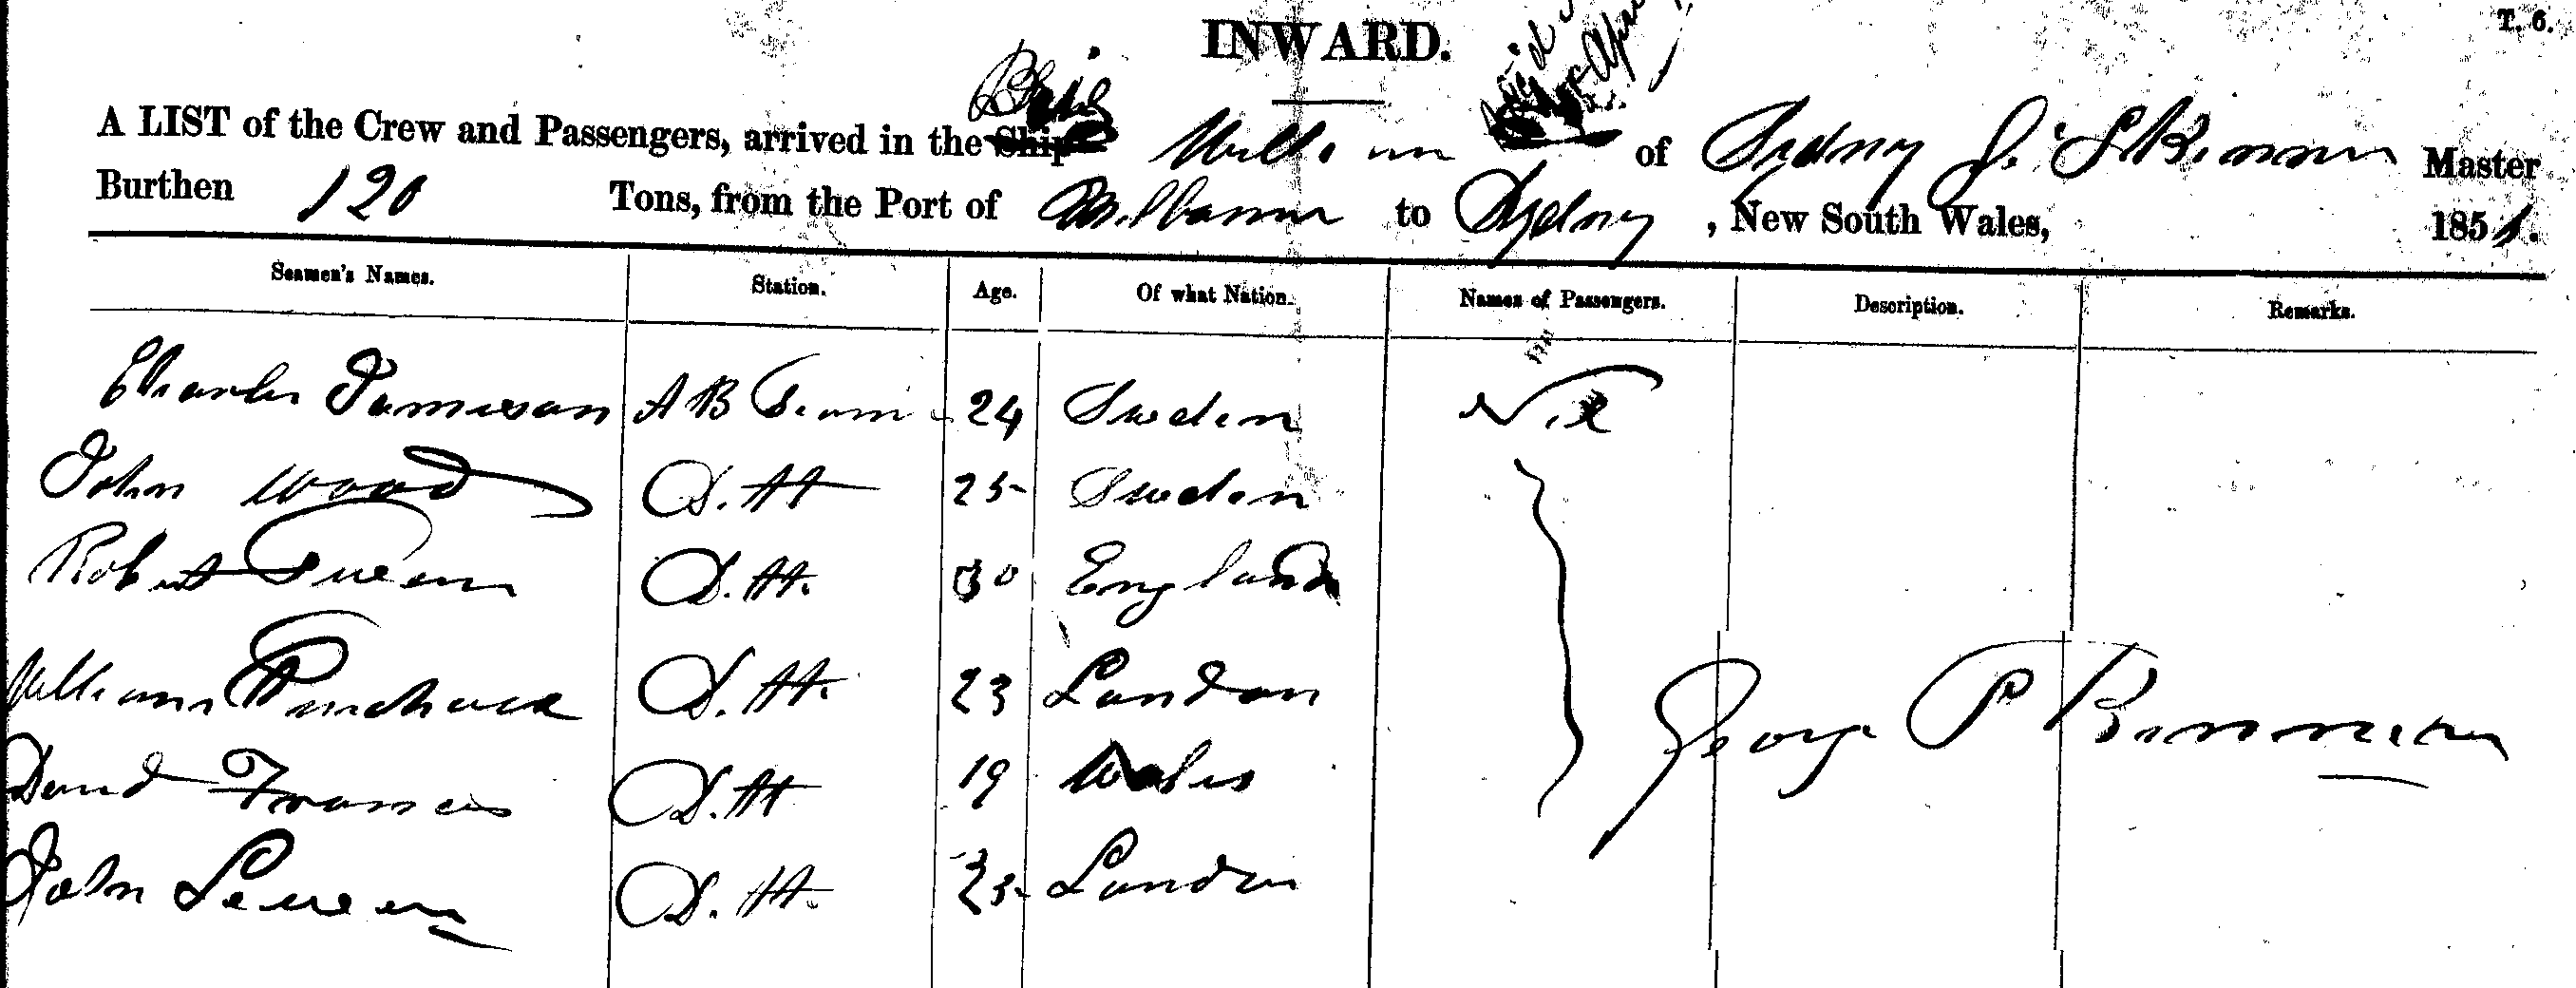 T. 6.
INWARD.
A LIST of the Crew and Passengers, arrived in the Brig William of Sydney Master
Burthen 120 Tons, from the Port of Melbourne to Sydney, New South Wales, 1851.
Seamen's Names. Station. Age. Of what Nation. Names of Passengers. Description. Remarks.
Charles Jameson A B Seam 24 Sweden Nil
John Wood D.tt 25 Sweden
Robert D.tt 30 England
William D.tt 23 London
David Francis D.tt 19 Wales
John D.tt London
George P